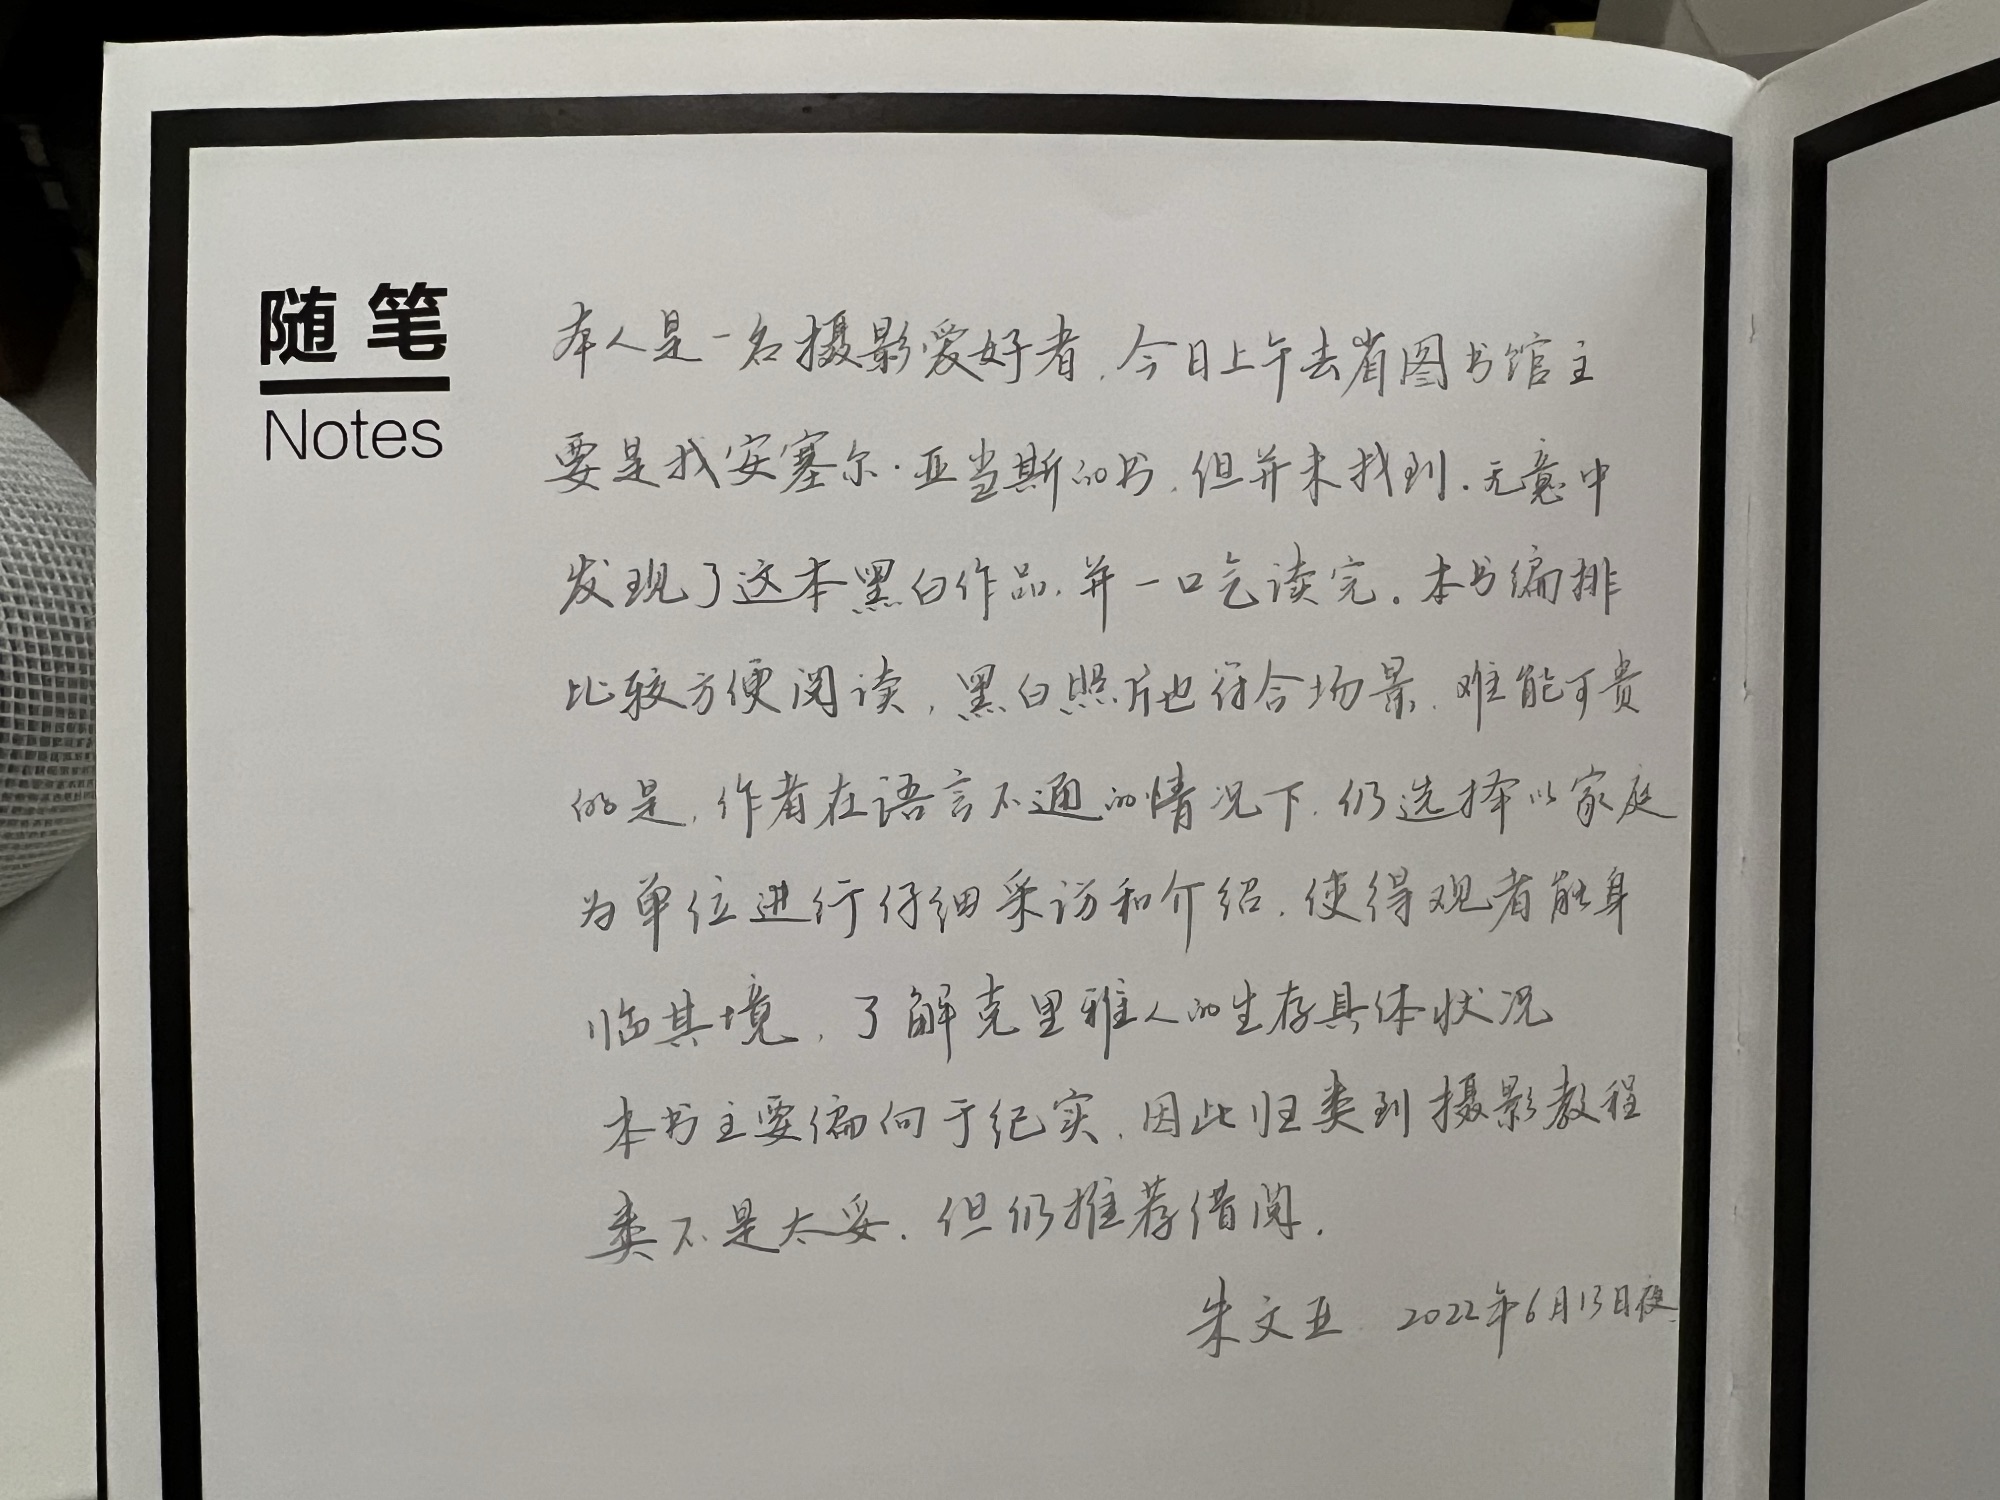 随笔
Notes
本人是一名摄影爱好者，今日上午去省图书馆主
要是找安塞尔·亚当斯的书，但并未找到．无意中
发现了这本黑白作品，并一口气读完．本书编排
比较方便阅读，黑白照片也符合场景，难能可贵
的是，作者在语言不通的情况下，仍选择以家庭
为单位进行仔细采访和介绍，使得观者能身
临其境，了解克里雅人的生存具体状况
本书主要偏向于纪实，因此归类到摄影教程
类不是太妥．但仍推荐借阅．
朱文亚 2022年6月13日夜